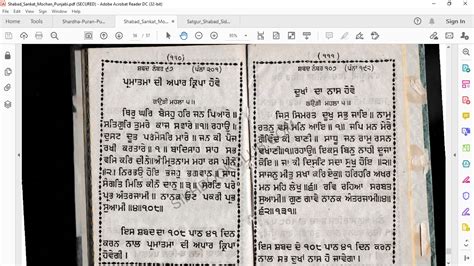 Shabad_Sankat_Mochan_Punjabi.pdf (SECURED) - Adobe Acrobat Reader DC (32-bit)
File Edit View Sign Window Help
Home Tools
Shardha-Puran-Pu...
Shabad_Sankat_Mo... ×
Satgur_Shabad_Sid...
(੧੧੦)
ਸ਼ਬਦ ਨੰਬਰ ੯੭ (ਪੰਨਾ ੨੦੧)
ਪ੍ਰਮਾਤਮਾ ਦੀ ਅਪਾਰ ਕ੍ਰਿਪਾ ਹੋਵੇ
ਗਉੜੀ ਮਹਲਾ ੫॥
ਥਿਰੁ ਘਰਿ ਬੈਸਹੁ ਹਰਿ ਜਨ ਪਿਆਰੇ॥
ਸਤਿਗੁਰਿ ਤੁਮਰੇ ਕਾਜ ਸਵਾਰੇ॥੧॥ ਰਹਾਉ॥
ਦੁਸਟ ਦੂਤ ਪਰਮੇਸਰਿ ਮਾਰੇ॥ ਜਨ ਕੀ ਪੈਜ
ਰਖੀ ਕਰਤਾਰੇ॥੧॥ ਬਾਦਿਸਾਹ ਸਾਹ ਸਭ
ਵਸਿ ਕਰਿ ਦੀਨੇ॥ਅੰਮ੍ਰਿਤ ਨਾਮ ਮਹਾ ਰਸ ਪੀਨੇ
॥੨॥ ਨਿਰਭਉ ਹੋਇ ਭਜਹੁ ਭਗਵਾਨ॥ ਸਾਧ
ਸੰਗਤਿ ਮਿਲਿ ਕੀਨੋ ਦਾਨੁ॥੩॥ ਸਰਣਿ ਪਰੇ
ਪ੍ਰਭ ਅੰਤਰਜਾਮੀ॥ ਨਾਨਕ ਓਟ ਪਕਰੀ ਪ੍ਰਭ
ਸੁਆਮੀ॥੪॥੧੦੮॥
ਇਸ ਸ਼ਬਦ ਦਾ ੧੦੮ ਪਾਠ ੪੧ ਦਿਨ
ਕਰਨ ਨਾਲ ਪ੍ਰਮਾਤਮਾ ਦੀ ਅਪਾਰ ਕ੍ਰਿਪਾ
ਹੋਵੇਗੀ।
(੧੧੧)
ਸ਼ਬਦ ਨੰਬਰ ੧੦੭ (ਪੰਨਾ ੧੯੨)
ਦੁਖਾਂ ਦਾ ਨਾਸ ਹੋਵੇ
ਗਉੜੀ ਮਹਲਾ ੫॥
ਜਿਸੁ ਸਿਮਰਤ ਦੂਖੁ ਸਭੁ ਜਾਇ॥ ਨਾਮੁ
ਰਤਨੁ ਵਸੈ ਮਨਿ ਆਇ॥੧॥ ਜਪਿ ਮਨ ਮੇਰੇ
ਗੋਵਿੰਦ ਕੀ ਬਾਣੀ॥ ਸਾਧੂ ਜਨ ਰਾਮੁ ਰਸਨ
ਵਖਾਣੀ॥੧॥ਰਹਾਉ॥ਇਕਸੁ ਬਿਨੁ ਨਾਹੀ ਦੂਜਾ
ਕੋਇ॥ ਜਾ ਕੀ ਦ੍ਰਿਸਟਿ ਸਦਾ ਸੁਖੁ ਹੋਇ॥੨॥
ਸਾਜਨੁ ਮੀਤੁ ਸਖਾ ਕਰਿ ਏਕੁ॥ਹਰਿ ਹਰਿ ਅਖਰ
ਮਨ ਮਹਿ ਲੇਖੁ॥੩॥ ਰਵਿ ਰਹਿਆ ਸਰਬਤ
ਸੁਆਮੀ॥ ਗੁਣ ਗਾਵੈ ਨਾਨਕੁ ਅੰਤਰਜਾਮੀ॥੪॥
ਇਸ ਸ਼ਬਦ ਦਾ ੧੦੮ ਪਾਠ ੪੧ ਦਿਨ
ਕਰਨ ਨਾਲ ਸਭ ਦੁਖਾਂ ਨਾਸ ਹੋ ਜਾਵੇਗਾ।